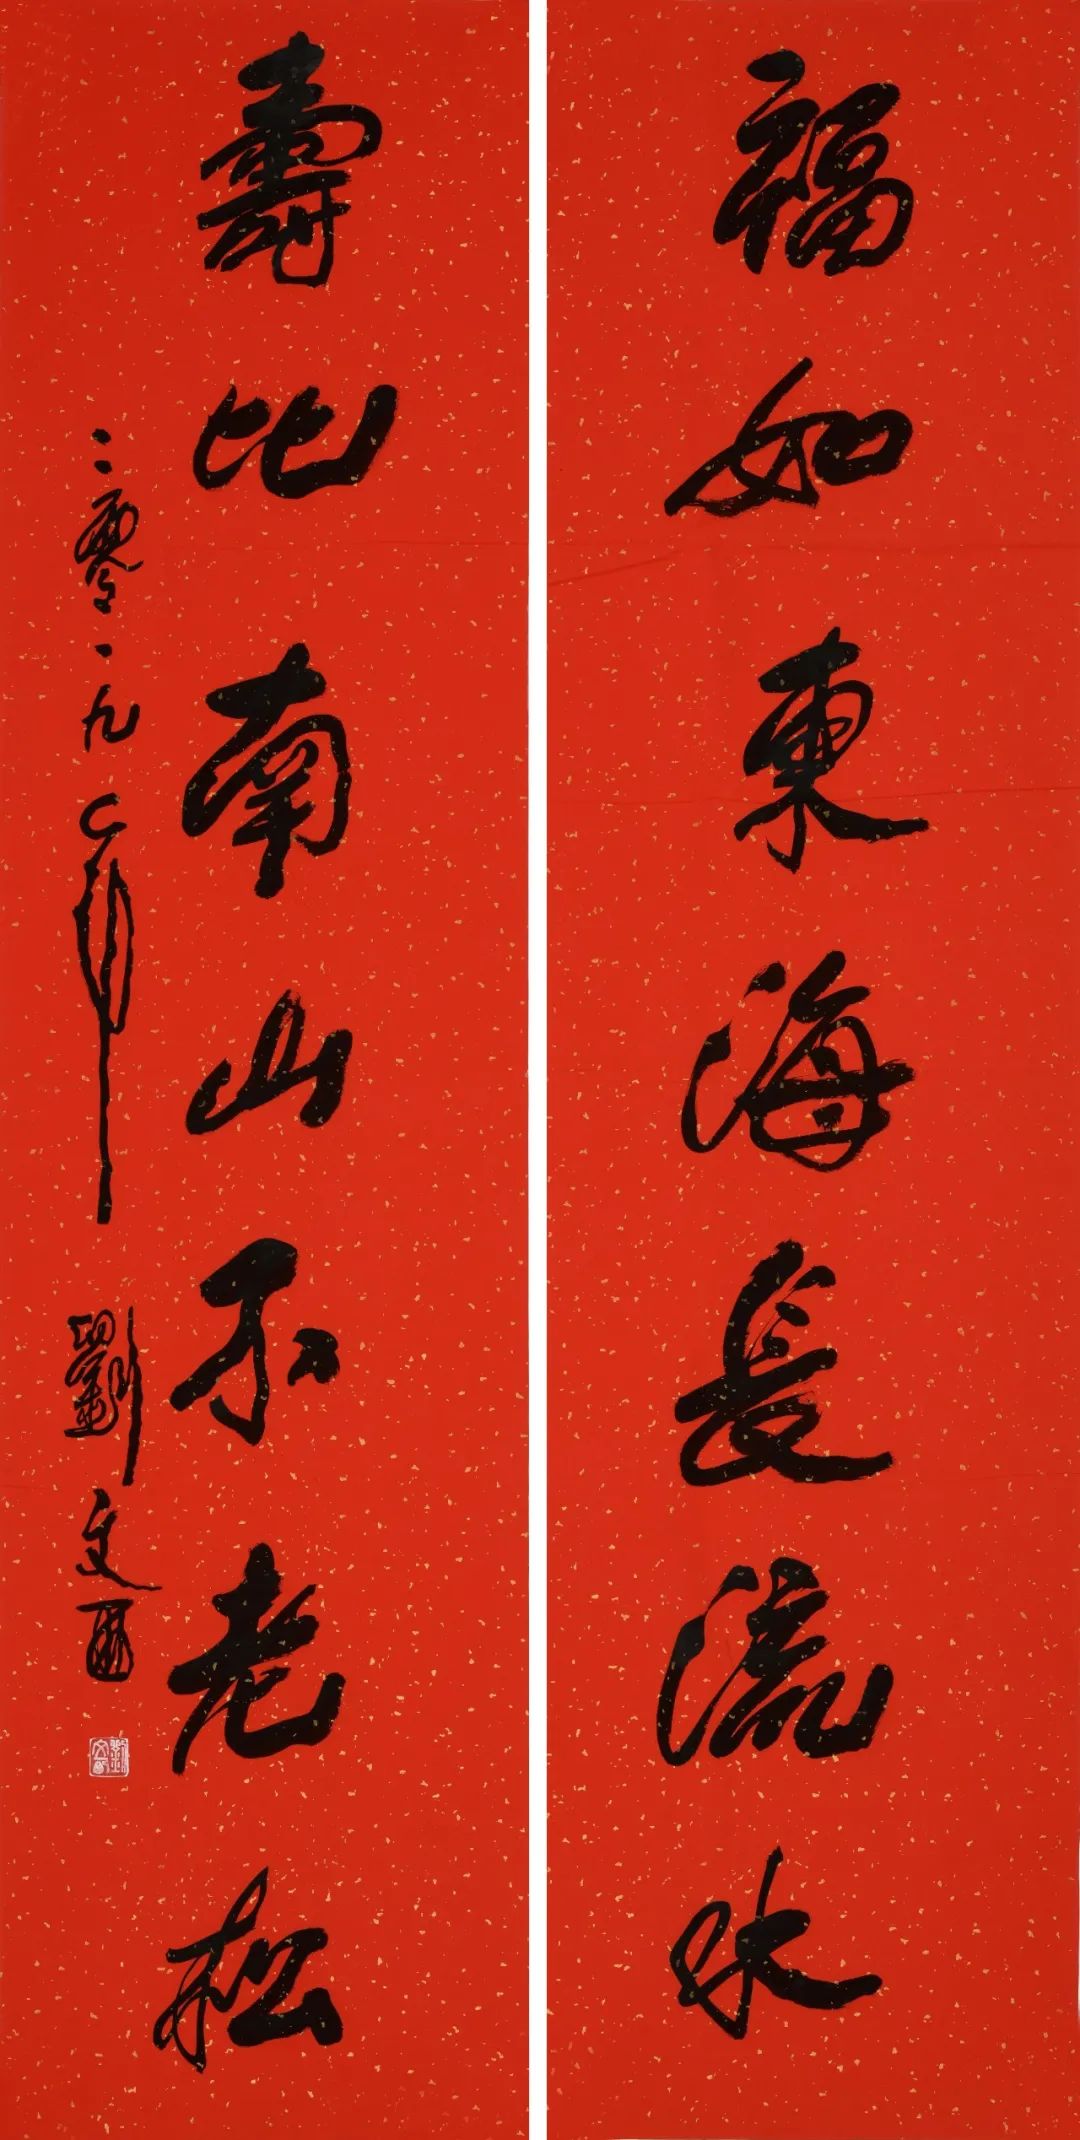 福如東海長流水
壽比南山不老松
二零一九年
劉文西